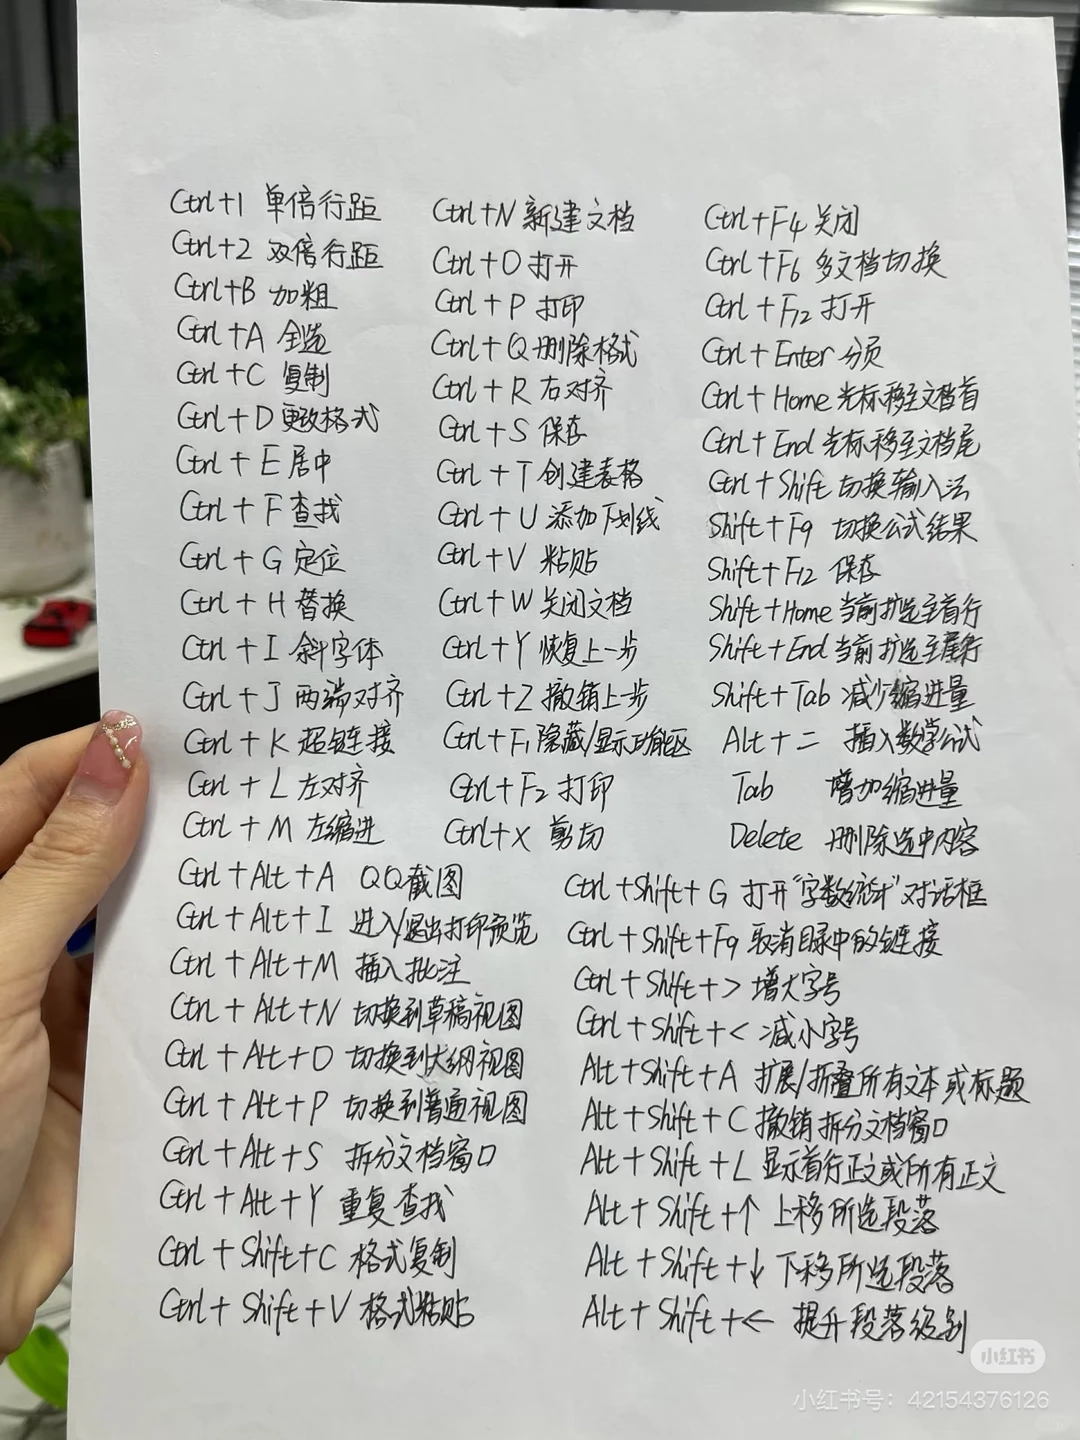 Ctrl+1 单倍行距
Ctrl+2 双倍行距
Ctrl+B 加粗
Ctrl+A 全选
Ctrl+C 复制
Ctrl+D 更改格式
Ctrl+E 居中
Ctrl+F 查找
Ctrl+G 定位
Ctrl+H 替换
Ctrl+I 斜字体
Ctrl+J 两端对齐
Ctrl+K 超链接
Ctrl+L 左对齐
Ctrl+M 左缩进
Ctrl+N 新建文档
Ctrl+O 打开
Ctrl+P 打印
Ctrl+Q 删除格式
Ctrl+R 右对齐
Ctrl+S 保存
Ctrl+T 创建表格
Ctrl+U 添加下划线
Ctrl+V 粘贴
Ctrl+W 关闭文档
Ctrl+Y 恢复上一步
Ctrl+Z 撤销上一步
Ctrl+F1 隐藏/显示功能区
Ctrl+F2 打印
Ctrl+X 剪切
Ctrl+F4 关闭
Ctrl+F6 多文档切换
Ctrl+F12 打开
Ctrl+Enter 分页
Ctrl+Home 光标移至文档首
Ctrl+End 光标移至文档尾
Ctrl+Shift 切换输入法
Shift+F9 切换公式结果
Shift+F12 保存
Shift+Home 当前扩选至首行
Shift+End 当前扩选至尾行
Shift+Tab 减少缩进量
Alt+= 插入数学公式
Tab 增加缩进量
Delete 删除选中内容
Ctrl+Alt+A QQ截图
Ctrl+Alt+I 进入/退出打印预览
Ctrl+Alt+M 插入批注
Ctrl+Alt+N 切换到草稿视图
Ctrl+Alt+O 切换到大纲视图
Ctrl+Alt+P 切换到普通视图
Ctrl+Alt+S 拆分文档窗口
Ctrl+Alt+Y 重复查找
Ctrl+Shift+C 格式复制
Ctrl+Shift+V 格式粘贴
Ctrl+Shift+G 打开"字数统计"对话框
Ctrl+Shift+F9 取消目录中的链接
Ctrl+Shift+> 增大字号
Ctrl+Shift+< 减小字号
Alt+Shift+A 扩展/折叠所有文本或标题
Alt+Shift+C 撤销拆分文档窗口
Alt+Shift+L 显示首行正文或所有正文
Alt+Shift+↑ 上移所选段落
Alt+Shift+↓ 下移所选段落
Alt+Shift+← 提升段落级别
小红书
小红书号：42154376126